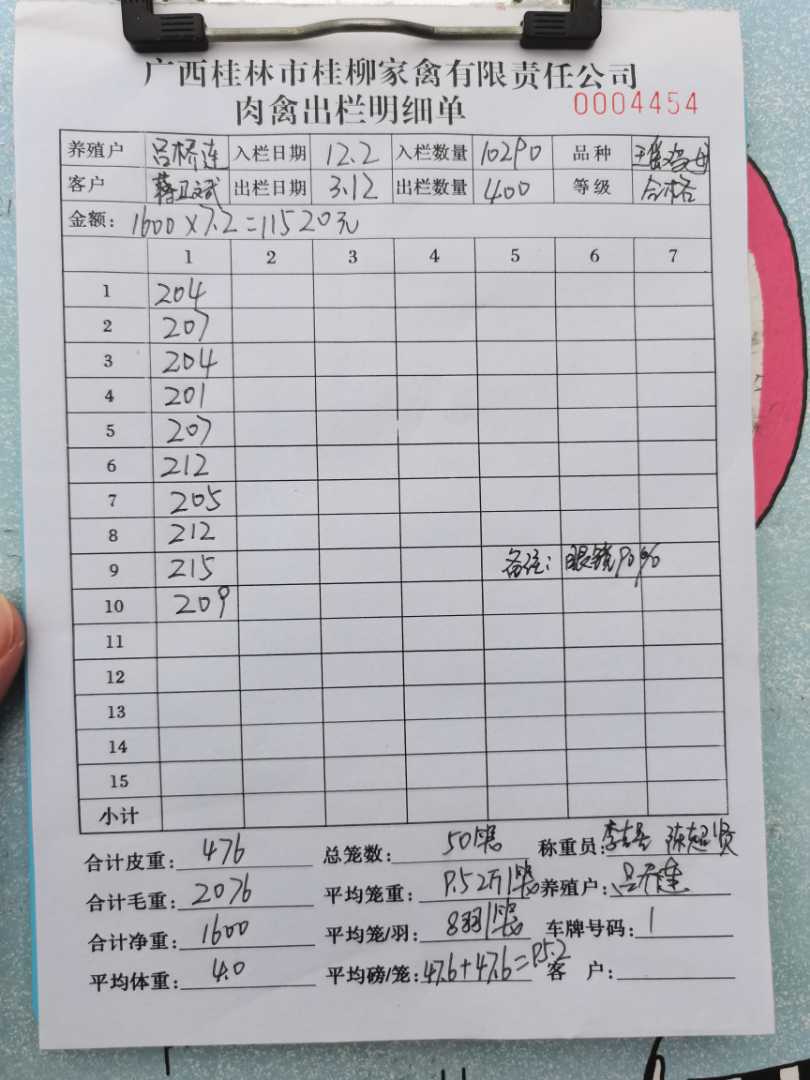 广西桂林市桂柳家禽有限责任公司
肉禽出栏明细单 0004454
养殖户 吕桥连 入栏日期 12.2 入栏数量 10290 品种
客户 蒋卫斌 出栏日期 3.12 出栏数量 400 等级 合格
金额: 1600×7.2=11520元
1 2 3 4 5 6 7
1 204
2 207
3 204
4 201
5 207
6 212
7 205
8 212
9 215 备注: 眼镜90%
10 209
11
12
13
14
15
小计
合计皮重: 476 总笼数: 50笼 称重员: 陈超贤
合计毛重: 2076 平均笼重: 9.52斤/笼 养殖户:
合计净重: 1600 平均笼/羽: 8羽/笼 车牌号码: 1
平均体重: 4.0 平均磅/笼: 47.6+47.6=95.2 客 户: